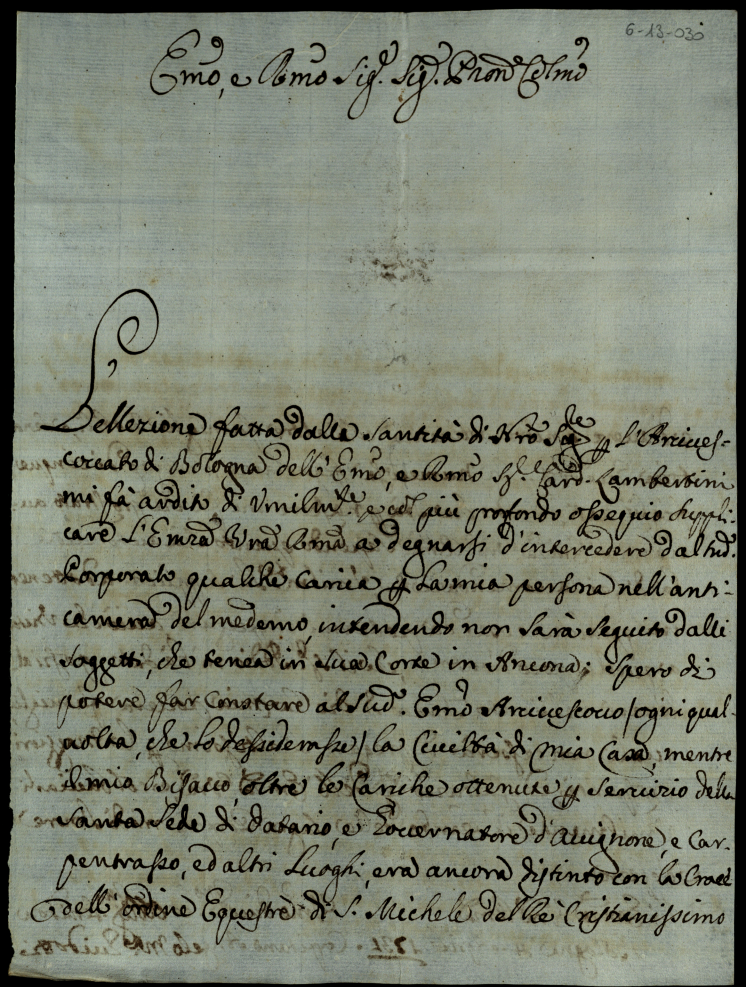 6-13-030
Emo, e Rmo Sig.e Sig.e Pron Colmo
L'ellezione fatta dalla Santità di Nro Sige p L'Arcives-
covato di Bologna dell'Emo, e Rmo Sig.e Card. Lambertini
mi fà ardito di Umilmte, e col più profondo ossequio suppli-
care L'Emza Vra Rma a degnarsi d'intercedere dal sud.o
Porporato qualche carica p la mia persona nell'anti-
camera del medemo, intendendo non sarà seguito dalli
soggetti, che tenea in sua Corte in Ancona; spero di
potere far constare al sud.o Emo Arcivescovo / ogni qual-
volta, che lo dessiderasse / la Civiltà di mia Casa, mentre
il mio Bisavo, oltre le Cariche ottenute p servizio della
Santa Sede di datario, e Governatore d'Avignone, e Car-
pentrasso, ed altri Luoghi, era ancora distinto con la Croce
dell'ordine Equestre di S. Michele del Rè Cristianissimo